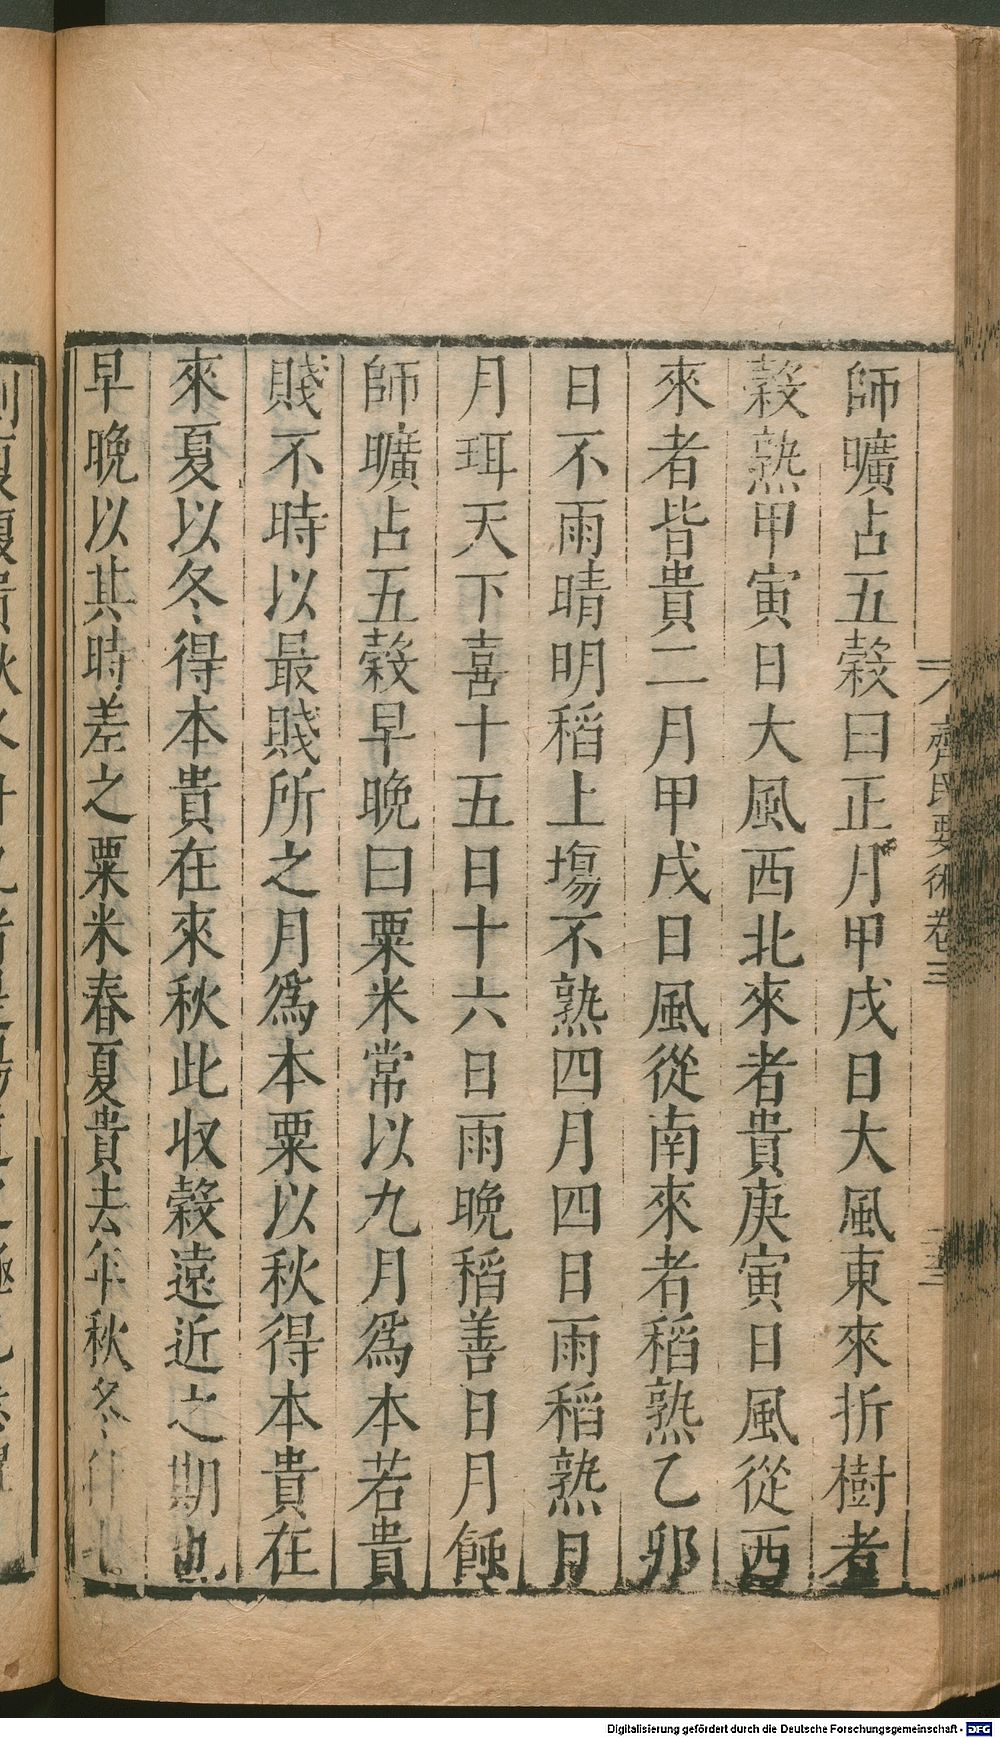 齊民要術卷三
師曠占五穀曰正月甲戌日大風東來折樹者
穀熟甲寅日大風西北來者貴庚寅日風從西
來者皆貴二月甲戌日風從南來者稻熟乙卯
日不雨晴明稻上塲不熟四月四日雨稻熟月
月珥天下喜十五日十六日雨晚稻善日月蝕
師曠占五穀早晚曰粟米常以九月爲本若貴
賤不時以最賤所之月爲本粟以秋得本貴在
來夏以冬得本貴在來秋此收穀遠近之期也
早晚以其時差之粟米春夏貴去年秋冬什七
Digitalisierung gefördert durch die Deutsche Forschungsgemeinschaft - DFG